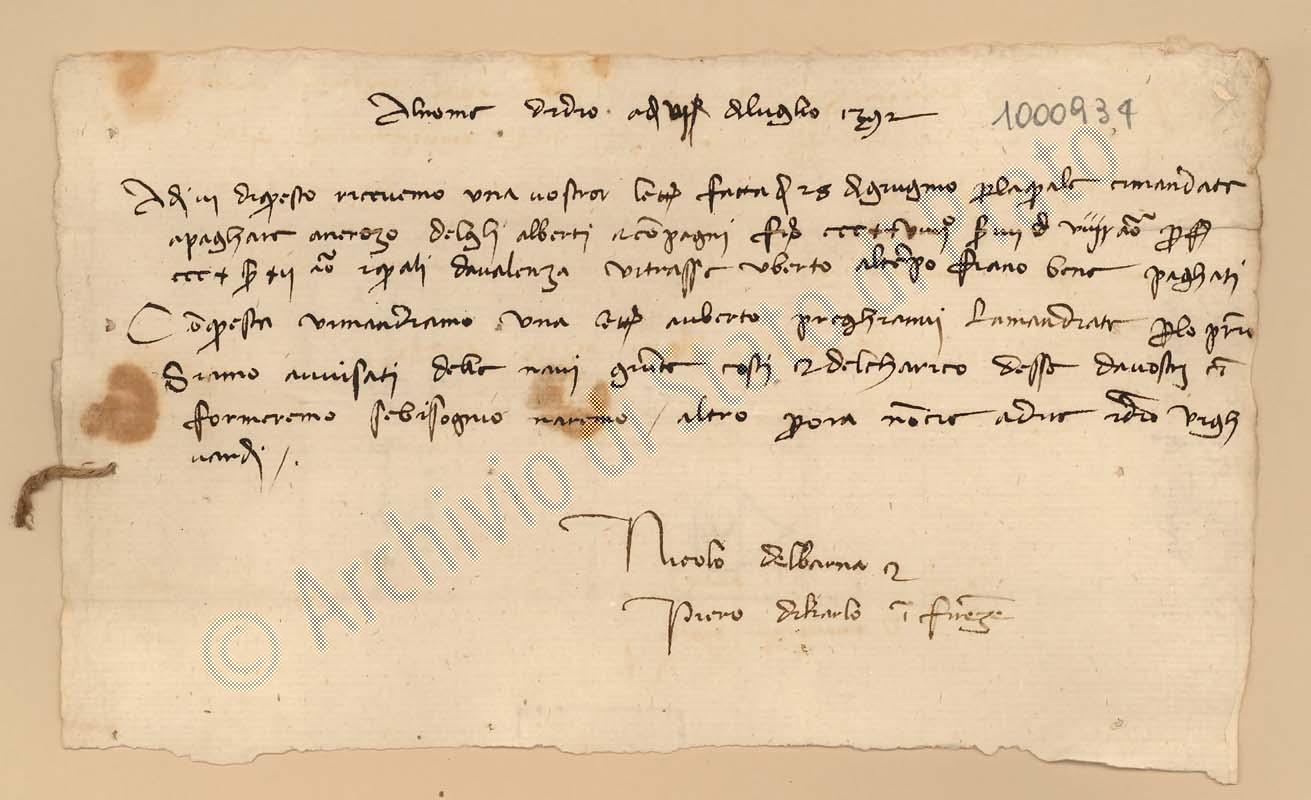 Al nome di dio adi viiii di luglio 1392
1000934
Adi iii di questo ricevemo una vostra lettr fatta di 25 di giugno per la quale ci mandate
a paghare a nerozo degli alberti e conpagni
davalenza vi trasse uberto al tenpo siano bene paghati
Con questa vi mandiamo una lettr a uberto preghianvi la mandiate per lo primo
Siamo avvisati delle navi giunte costì e del charico desse da vostri ci
formeremo se bisogno naremo / altro per ora non ci è a dire idio vi gh
uardi /
Nicolò del barna e
Piero di karlo in firenze
© Archivio di Stato di Prato